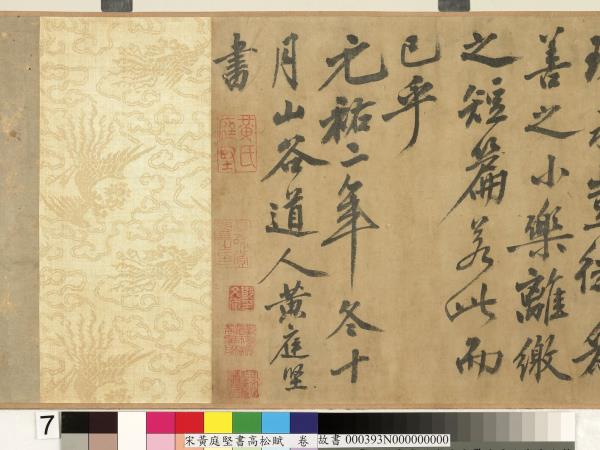 善之小樂離繳
之短篇若此而
已乎
元祐二年冬十
月山谷道人黃庭堅
書
黃氏
庭堅
7
宋黃庭堅書高松賦 卷 故書 000393N000000000